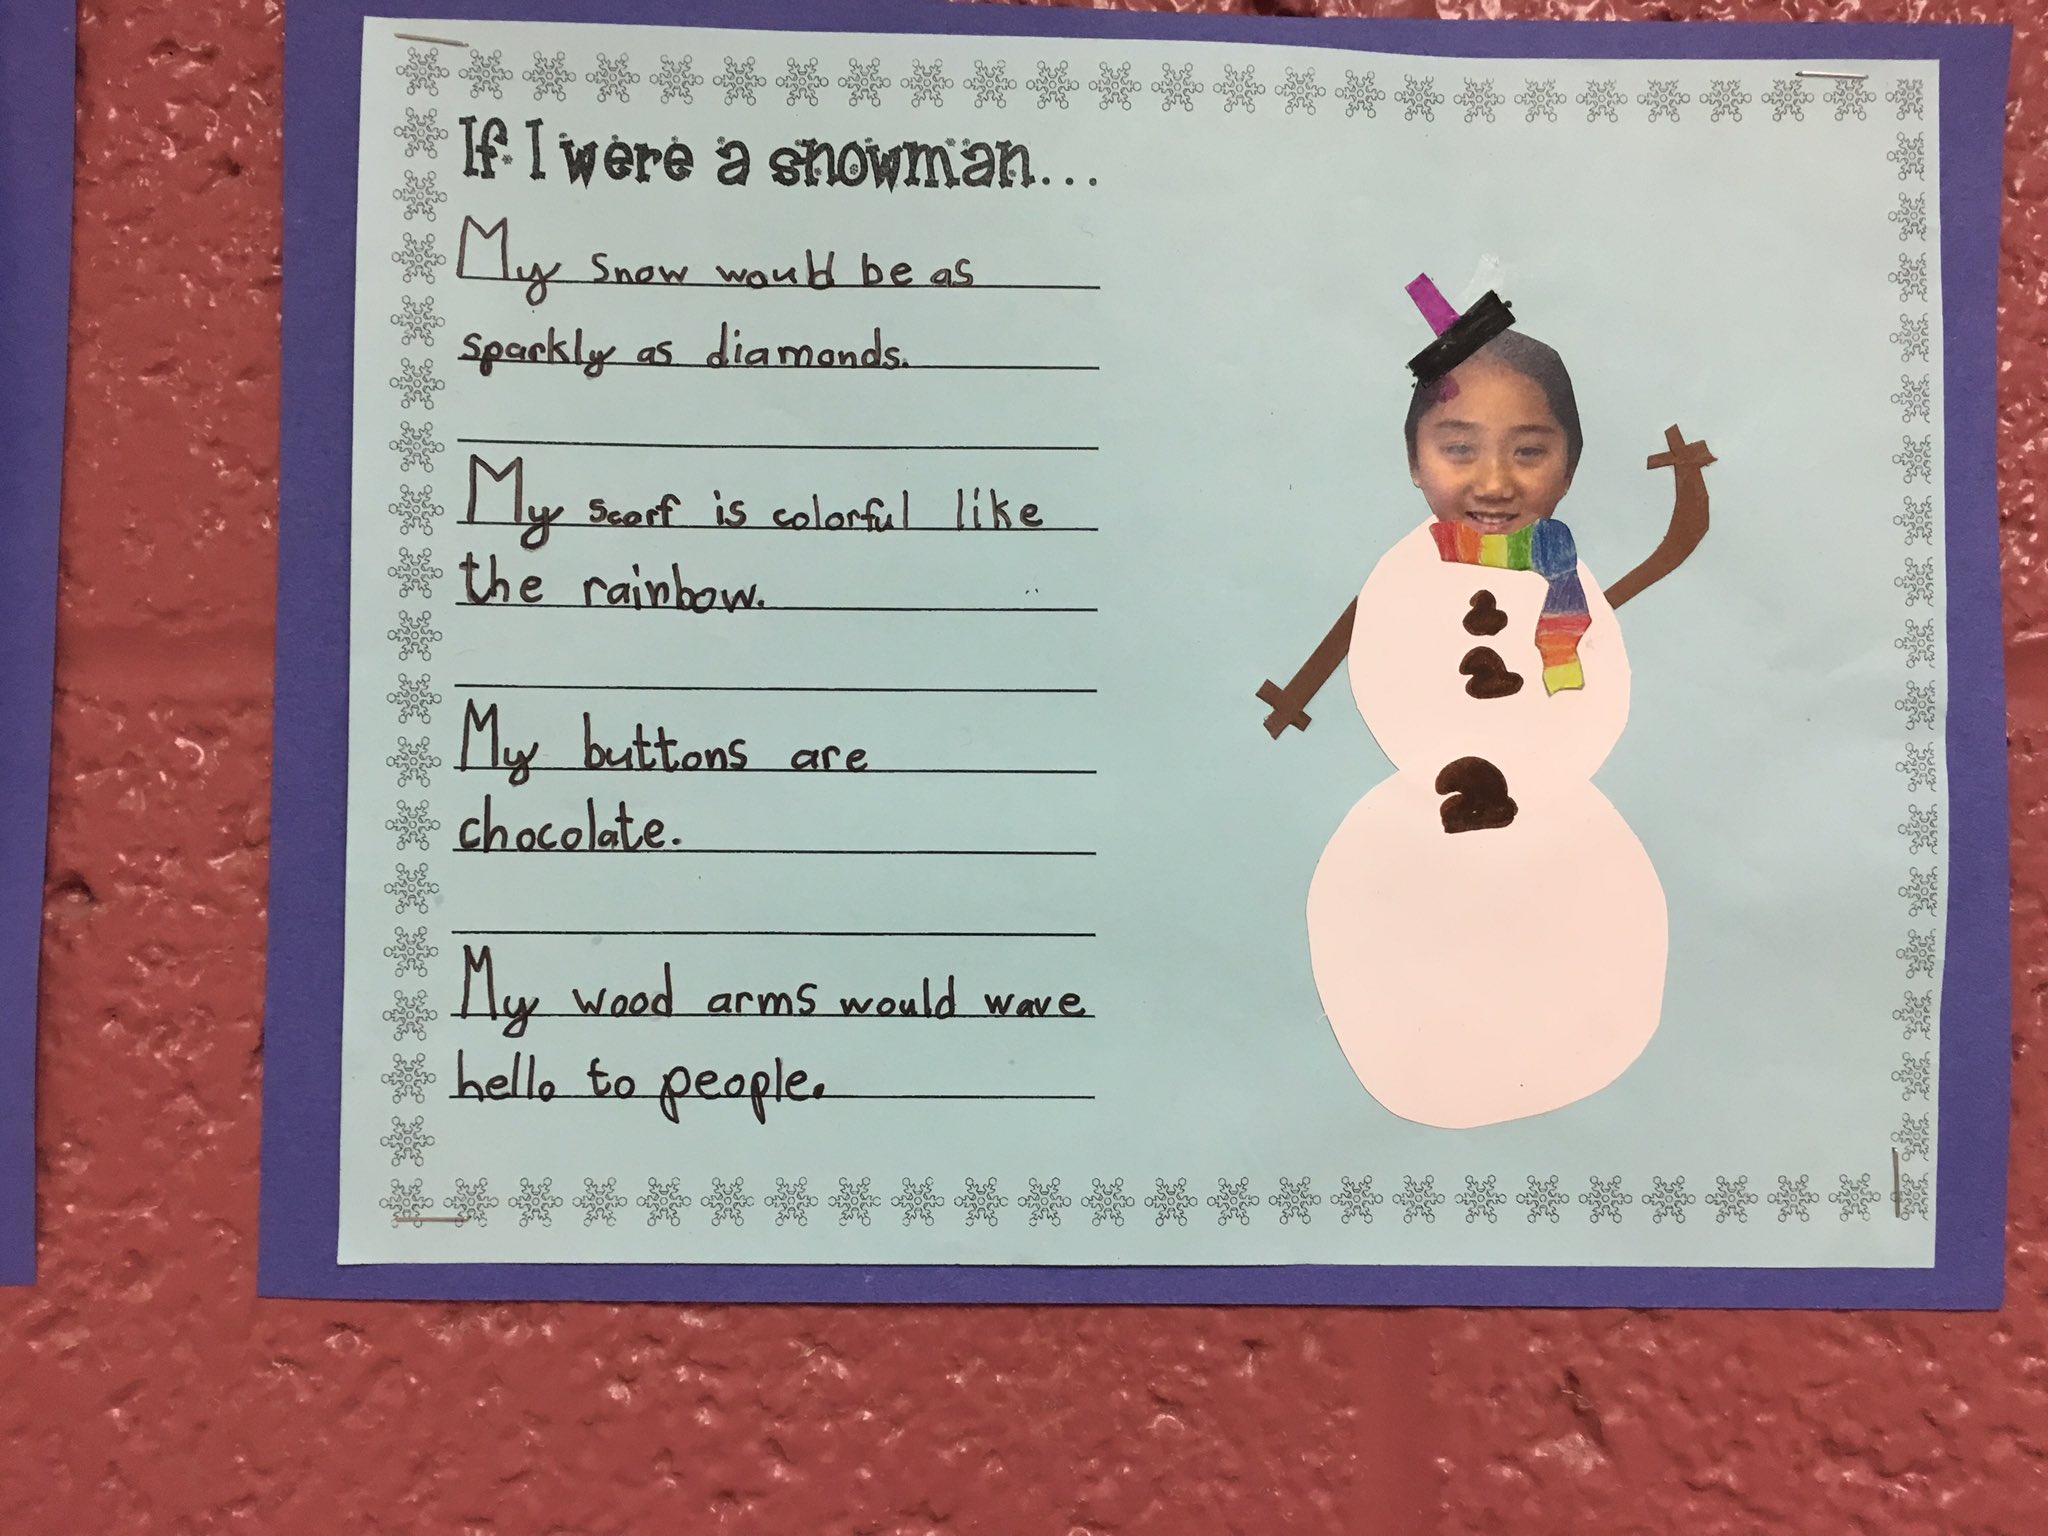 If I were a snowman...
My snow would be as
sparkly as diamonds.
My scarf is colorful like
the rainbow.
My buttons are
chocolate.
My wood arms would wave
hello to people.